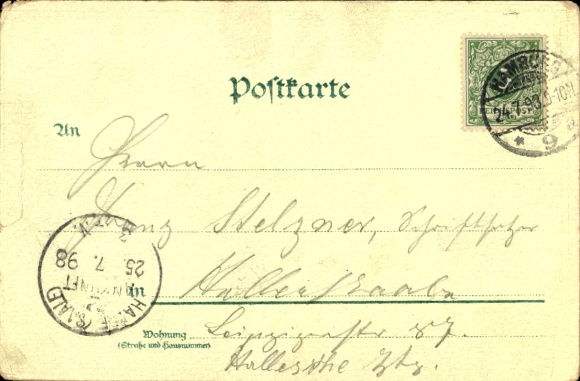 Postkarte
HAMBURG
24.7.98.
* 9
An
Herrn
Stelzner, Schriftsetzer
HALLE (SAALE)
ANKUNFT
25. 7. 98
in Halle a/Saale
Wohnung
(Straße und Hausnummer)
Leipzigerstr 87.
Hallesche Ztg.